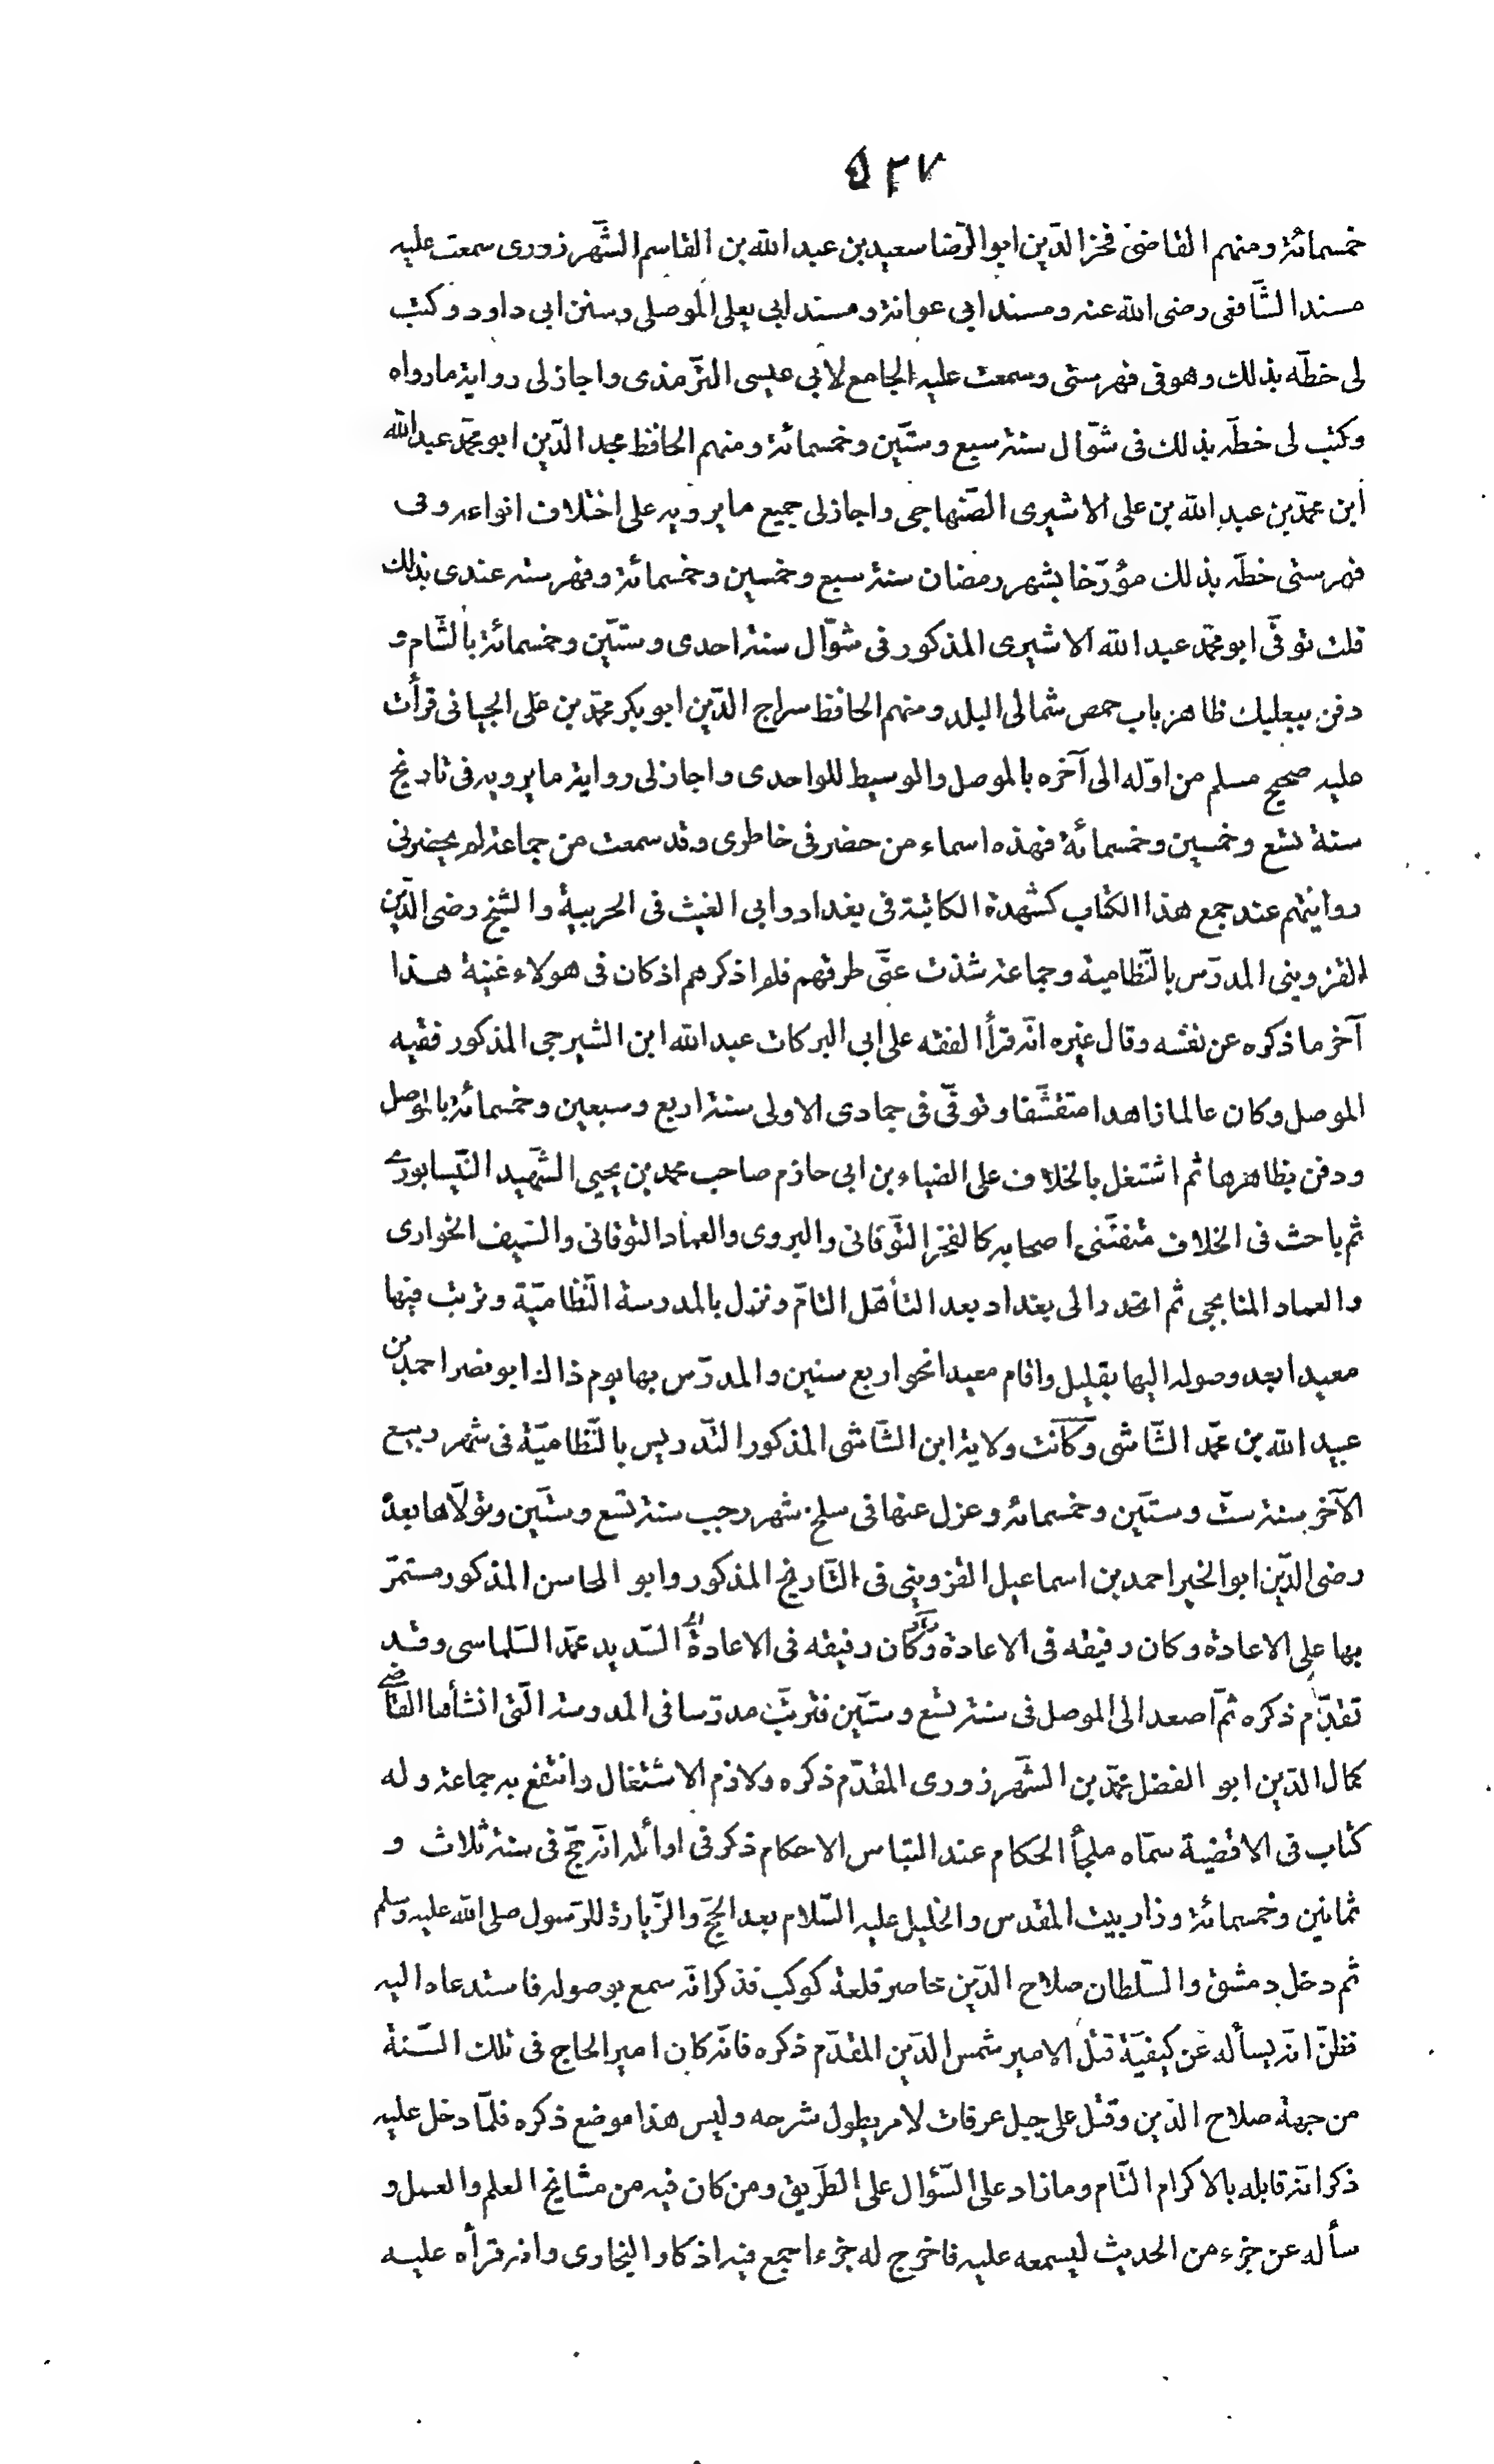 ٥٢٧
خمسمائة ومنهم القاضى فخر الدّين ابو الرّضا سعيد بن عبد الله بن القاسم الشّهرزورى سمعت عليه
مسند الشّافعى رضى الله عنه ومسند ابى عوانة ومسند ابى يعلى الموصلى وسنن ابى داود وكتب
لى خطّه بذلك وهو فى فهرستى وسمعت عليه الجامع لابى عيسى التّرمذى واجاز لى رواية ما رواه
وكتب لى خطّه بذلك فى شوّال سنة سبع وستّين وخمسمائة ومنهم الحافظ مجد الدّين ابو محمّد عبد الله
ابن محمّد بن عبد الله بن على الاشيرى الصّنهاجى واجاز لى جميع ما يرويه على اختلاف انواعه وفى
فهرستى خطّه بذلك مؤرّخا بشهر رمضان سنة سبع وخمسين وخمسمائة وفهرسته عندى بذلك
قلت توفّى ابو محمّد عبد الله الاشيرى المذكور فى شوّال سنة احدى وستّين وخمسمائة بالشّام و
دفن ببعلبك ظاهر باب حمص شمالى البلد ومنهم الحافظ سراج الدّين ابو بكر محمّد بن على الجيانى قرأت
عليه صحيح مسلم من اوّله الى آخره بالموصل والوسيط للواحدى واجاز لى رواية ما يرويه فى تاريخ
سنة تسع وخمسين وخمسمائة فهذه اسماء من حضر فى خاطرى وقد سمعت من جماعة لم يحضرنى
روايتهم عند جمع هذا الكتاب كشهدة الكاتبة فى بغداد وابى الغيث فى الحربية والشيخ رضى الدّين
القزوينى المدرّس بالنّظامية وجماعة شذت عنّى طرقهم فلم اذكرهم اذ كان فى هولاء غنية هذا
آخر ما ذكره عن نفسه وقال غيره انّه قرأ الفقه على ابى البركات عبد الله ابن الشيرجى المذكور فقيه
الموصل وكان عالما زاهدا متقشّفا وتوفّى فى جمادى الاولى سنة اربع وسبعين وخمسمائة بالموصل
ودفن بظاهرها ثم اشتغل بالخلاف على الضياء بن ابى حازم صاحب محمد بن يحيى الشّهيد النّيسابورى
ثم باحث فى الخلاف متفنّنى اصحابه كالفخر النّوقانى والبروى والعماد النوقانى والسّيف الخوارى
والعماد الميانجى ثم انحدر الى بغداد بعد التأهّل التامّ ونزل بالمدرسة النّظاميّة وترتب فيها
معيدا بعد وصوله اليها بقليل واقام معيدا نحو اربع سنين والمدرّس بها يوم ذاك ابو نصر احمد بن
عبيد الله بن محمّد الشّاشى وكانت ولاية ابن الشّاشى المذكور التّدريس بالنّظاميّة فى شهر ربيع
الآخر سنة ستّ وستّين وخمسمائة وعزل عنها فى سلخ شهر رجب سنة تسع وستّين وتولّاها بعده
رضى الدّين ابو الخير احمد بن اسماعيل القزوينى فى التّاريخ المذكور وابو المحاسن المذكور مستمرّ
بها على الاعادة وكان رفيقه فى الاعادة وكان رفيقه فى الاعادة السّديد محمّد السّلماسى وقد
تقدّم ذكره ثمّ اصعد الى الموصل فى سنة تسع وستّين فترتّب مدرّسا فى المدرسة الّتى انشأها القاضى
كمال الدّين ابو الفضل محمّد بن الشّهرزورى المقدّم ذكره ولازم الاشتغال وانتفع به جماعة وله
كتاب فى الاقضية سمّاه ملجأ الحكام عند التباس الاحكام ذكر فى اوائله انّه حجّ فى سنة ثلاث و
ثمانين وخمسمائة وزار بيت المقدس والخليل عليه السّلام بعد الحجّ والزّيارة للرّسول صلى الله عليه وسلم
ثم دخل دمشق والسّلطان صلاح الدّين حاصر قلعة كوكب فذكر انّه سمع بوصوله فاستدعاه اليه
فظنّ انّه يسأله عن كيفيّة قتل الامير شمس الدّين المقدّم ذكره فانّه كان امير الحاج فى تلك السّنة
من جهة صلاح الدّين وقتل على جبل عرفات لامر يطول شرحه وليس هذا موضع ذكره فلمّا دخل عليه
ذكر انّه قابله بالاكرام التّام وما زاد على السّؤال على الطّريق ومن كان فيه من مشايخ العلم والعمل و
سأله عن جزء من الحديث ليسمعه عليه فاخرج له جزءا جمع فيه اذكار البخارى وانه قرأه عليه